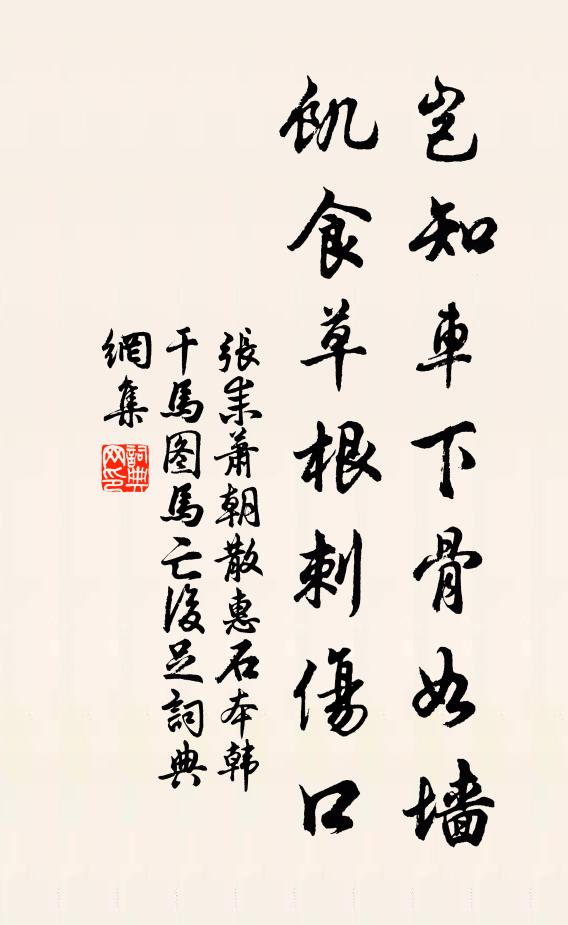 岂知車下骨如墙
飢食草根刺傷口
張耒蕭朝散惠石本韩
干馬图馬亡後足詞典
網集
詞典
网印